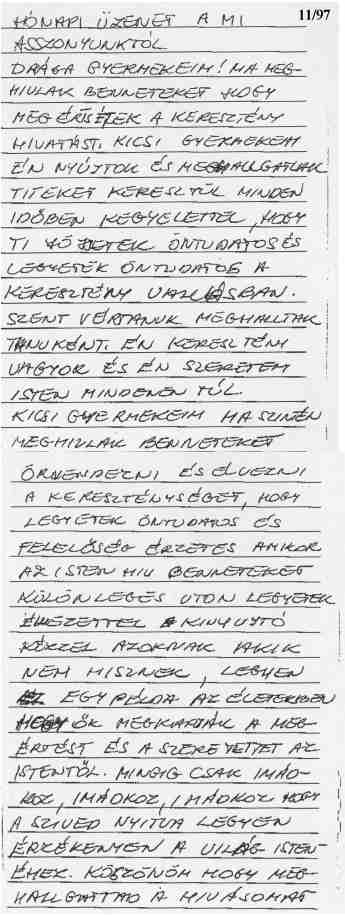 11/97
HÓNAPI ÜZENET A MI
ASSZONYUNKTÓL
DRÁGA GYERMEKEIM! MA MEG-
HIVLAK BENNETEKET HOGY
MEGÉRTSÉTEK A KERESZTÉNY
HIVATÁST. KICSI GYERMEKEIM
ÉN NYÚJTOK ÉS MEGHALLGATLAK
TITEKET KERESZTÜL MINDEN
IDŐBEN KEGYELETTEL, HOGY
TI ÖNTUDATOS ÉS
LEGYETEK ÖNTUDATOS A
KERESZTÉNY VALLÁSBAN.
SZENT VÉRTANUK MEGHALLTAK
TANUKÉNT. ÉN KERESZTÉNY
VAGYOK ÉS ÉN SZERETEM
ISTEN MINDENEN TÚL.
KICSI GYERMEKEIM MA SZINTÉN
MEGHIVLAK BENNETEKET
ÖRVENDEZNI ÉS ÉLVEZNI
A KERESZTÉNYSÉGET, HOGY
LEGYETEK ÖNTUDATOS ÉS
FELELŐSÉG ÉRZETES AMIKOR
AZ ISTEN HIV BENNETEKET
KÜLÖNLEGES UTON LEGYETEK
A KINYUJTÓ
KÉZZEL AZOKNAK AKIK
NEM HISZNEK, LEGYEN
EGY PÉLDA AZ ÉLETEKBEN
HOGY ŐK MEGKAPJÁK A MEG-
ÉRTÉST ÉS A SZERETETET AZ
ISTENTŐL. MINDIG CSAK IMÁD-
KOZ, IMÁDKOZ, IMÁDKOZ HOGY
A SZIVED NYITVA LEGYEN
ÉRZÉKENYEN A VILÁG ISTEN-
ÉNEK. KÖSZÖNÖM HOGY MEG-
HALLGATTAD A HIVÁSOMAT